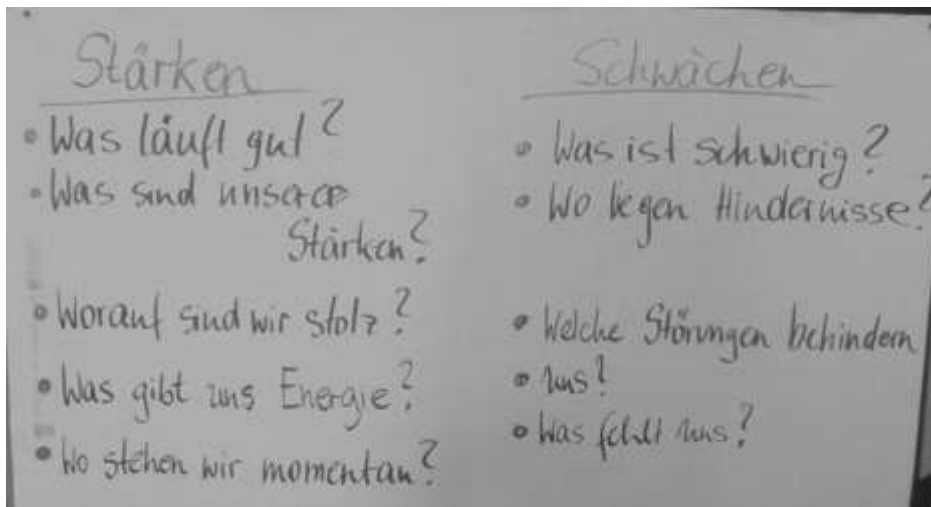 Stärken
• Was läuft gut?
• Was sind unsere
Stärken?
• Worauf sind wir stolz?
• Was gibt uns Energie?
• Wo stehen wir momentan?
Schwächen
• Was ist schwierig?
• Wo liegen Hindernisse?
• Welche Störungen behindern
• uns?
• Was fehlt uns?